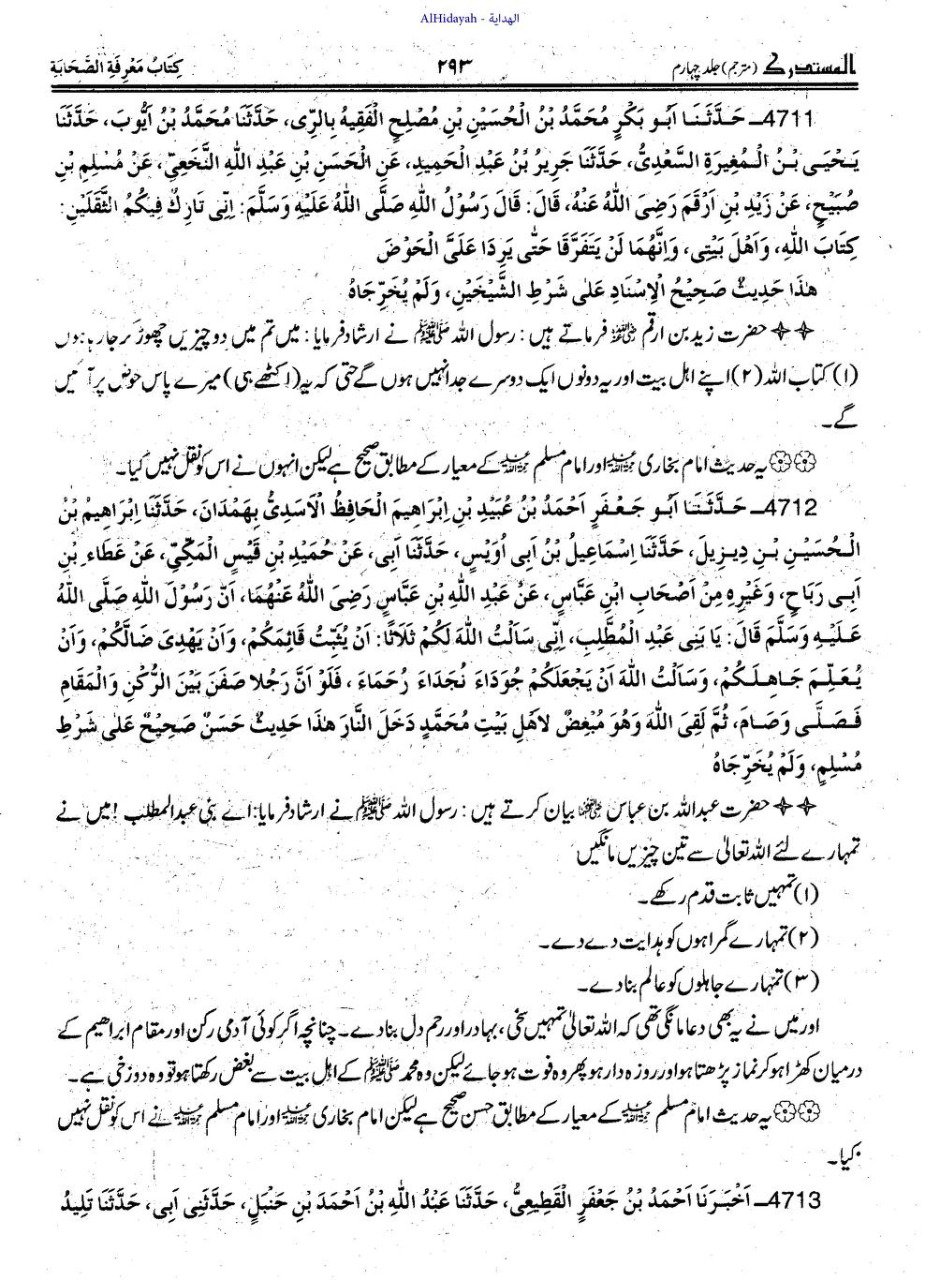 AlHidayah - الهداية
المستدرك (مترجم) جلد چہارم ۲۹۳ كِتَابُ مَعْرِفَةِ الصَّحَابَةِ
4711ـ حَدَّثَنَا اَبُو بَكْرٍ مُحَمَّدُ بْنُ الْحُسَيْنِ بْنِ مُصْلِحٍ الْفَقِيهُ بِالرِّى، حَدَّثَنَا مُحَمَّدُ بْنُ اَيُّوبَ، حَدَّثَنَا
يَحْيَى بْنُ الْمُغِيرَةِ السَّعْدِىُّ، حَدَّثَنَا جَرِيرُ بْنُ عَبْدِ الْحَمِيدِ، عَنِ الْحَسَنِ بْنِ عَبْدِ اللهِ النَّخَعِيِّ، عَنْ مُسْلِمِ بْنِ
صُبَيْحٍ، عَنْ زَيْدِ بْنِ اَرْقَمَ رَضِىَ اللهُ عَنْهُ، قَالَ: قَالَ رَسُوْلُ اللهِ صَلَّى اللهُ عَلَيْهِ وَسَلَّمَ: اِنِّى تَارِكٌ فِيكُمُ الثَّقَلَيْنِ:
كِتَابَ اللهِ، وَاَهْلَ بَيْتِى، وَاِنَّهُمَا لَنْ يَتَفَرَّقَا حَتّٰى يَرِدَا عَلَىَّ الْحَوْضَ
هٰذَا حَدِيثٌ صَحِيْحُ الْاِسْنَادِ عَلٰى شَرْطِ الشَّيْخَيْنِ، وَلَمْ يُخَرِّجَاهُ
✧✧ حضرت زید بن ارقم رضی اللہ عنہ فرماتے ہیں: رسول اللہ ﷺ نے ارشاد فرمایا: میں تم میں دو چیزیں چھوڑ کر جا رہا ہوں
(۱) کتاب اللہ (۲) اپنے اہل بیت اور یہ دونوں ایک دوسرے جدا نہیں ہوں گے حتی کہ یہ (اکٹھے ہی) میرے پاس حوض پر آئیں
گے۔
یہ حدیث امام بخاری رحمۃ اللہ علیہ اور امام مسلم رحمۃ اللہ علیہ کے معیار کے مطابق صحیح ہے لیکن انہوں نے اس کو نقل نہیں کیا۔
4712ـ حَدَّثَنَا اَبُو جَعْفَرٍ اَحْمَدُ بْنُ عُبَيْدِ بْنِ اِبْرَاهِيمَ الْحَافِظُ الْاَسَدِىُّ بِهَمْدَانَ، حَدَّثَنَا اِبْرَاهِيمُ بْنُ
الْحُسَيْنِ بْنِ دِيزِيلَ، حَدَّثَنَا اِسْمَاعِيلُ بْنُ اَبِى اُوَيْسٍ، حَدَّثَنَا اَبِى، عَنْ حُمَيْدِ بْنِ قَيْسٍ الْمَكِّيِّ، عَنْ عَطَاءِ بْنِ
اَبِى رَبَاحٍ، وَغَيْرِهِ مِنْ اَصْحَابِ ابْنِ عَبَّاسٍ، عَنْ عَبْدِ اللهِ بْنِ عَبَّاسٍ رَضِىَ اللهُ عَنْهُمَا، اَنَّ رَسُوْلَ اللهِ صَلَّى اللهُ
عَلَيْهِ وَسَلَّمَ قَالَ: يَا بَنِى عَبْدِ الْمُطَّلِبِ، اِنِّى سَاَلْتُ اللهَ لَكُمْ ثَلَاثًا: اَنْ يُثَبِّتَ قَائِمَكُمْ، وَاَنْ يَهْدِىَ ضَالَّكُمْ، وَاَنْ
يُعَلِّمَ جَاهِلَكُمْ، وَسَاَلْتُ اللهَ اَنْ يَجْعَلَكُمْ جُوَدَاءَ نُجَدَاءَ رُحَمَاءَ، فَلَوْ اَنَّ رَجُلا صَفَنَ بَيْنَ الرُّكْنِ وَالْمَقَامِ
فَصَلَّى وَصَامَ، ثُمَّ لَقِىَ اللهَ وَهُوَ مُبْغِضٌ لاَهْلِ بَيْتِ مُحَمَّدٍ دَخَلَ النَّارَ هٰذَا حَدِيثٌ حَسَنٌ صَحِيْحٌ عَلٰى شَرْطِ
مُسْلِمٍ، وَلَمْ يُخَرِّجَاهُ
✧✧ حضرت عبداللہ بن عباس رضی اللہ عنہما بیان کرتے ہیں: رسول اللہ ﷺ نے ارشاد فرمایا: اے بنی عبدالمطلب! میں نے
تمہارے لئے اللہ تعالیٰ سے تین چیزیں مانگیں
(۱) تمہیں ثابت قدم رکھے۔
(۲) تمہارے گمراہوں کو ہدایت دے دے۔
(۳) تمہارے جاہلوں کو عالم بنا دے۔
اور میں نے یہ بھی دعا مانگی تھی کہ اللہ تعالیٰ تمہیں سخی، بہادر اور رحم دل بنا دے۔ چنانچہ اگر کوئی آدمی رکن اور مقام ابراھیم کے
درمیان کھڑا ہو کر نماز پڑھتا ہو اور روزہ دار ہو پھر وہ فوت ہو جائے لیکن وہ محمد ﷺ کے اہل بیت سے بغض رکھتا ہو تو وہ دوزخی ہے۔
یہ حدیث امام مسلم رحمۃ اللہ علیہ کے معیار کے مطابق حسن صحیح ہے لیکن امام بخاری رحمۃ اللہ علیہ اور امام مسلم رحمۃ اللہ علیہ نے اس کو نقل نہیں
کیا۔
4713ـ اَخْبَرَنَا اَحْمَدُ بْنُ جَعْفَرٍ الْقَطِيعِىُّ، حَدَّثَنَا عَبْدُ اللهِ بْنُ اَحْمَدَ بْنِ حَنْبَلٍ، حَدَّثَنِى اَبِى، حَدَّثَنَا تَلِيدُ